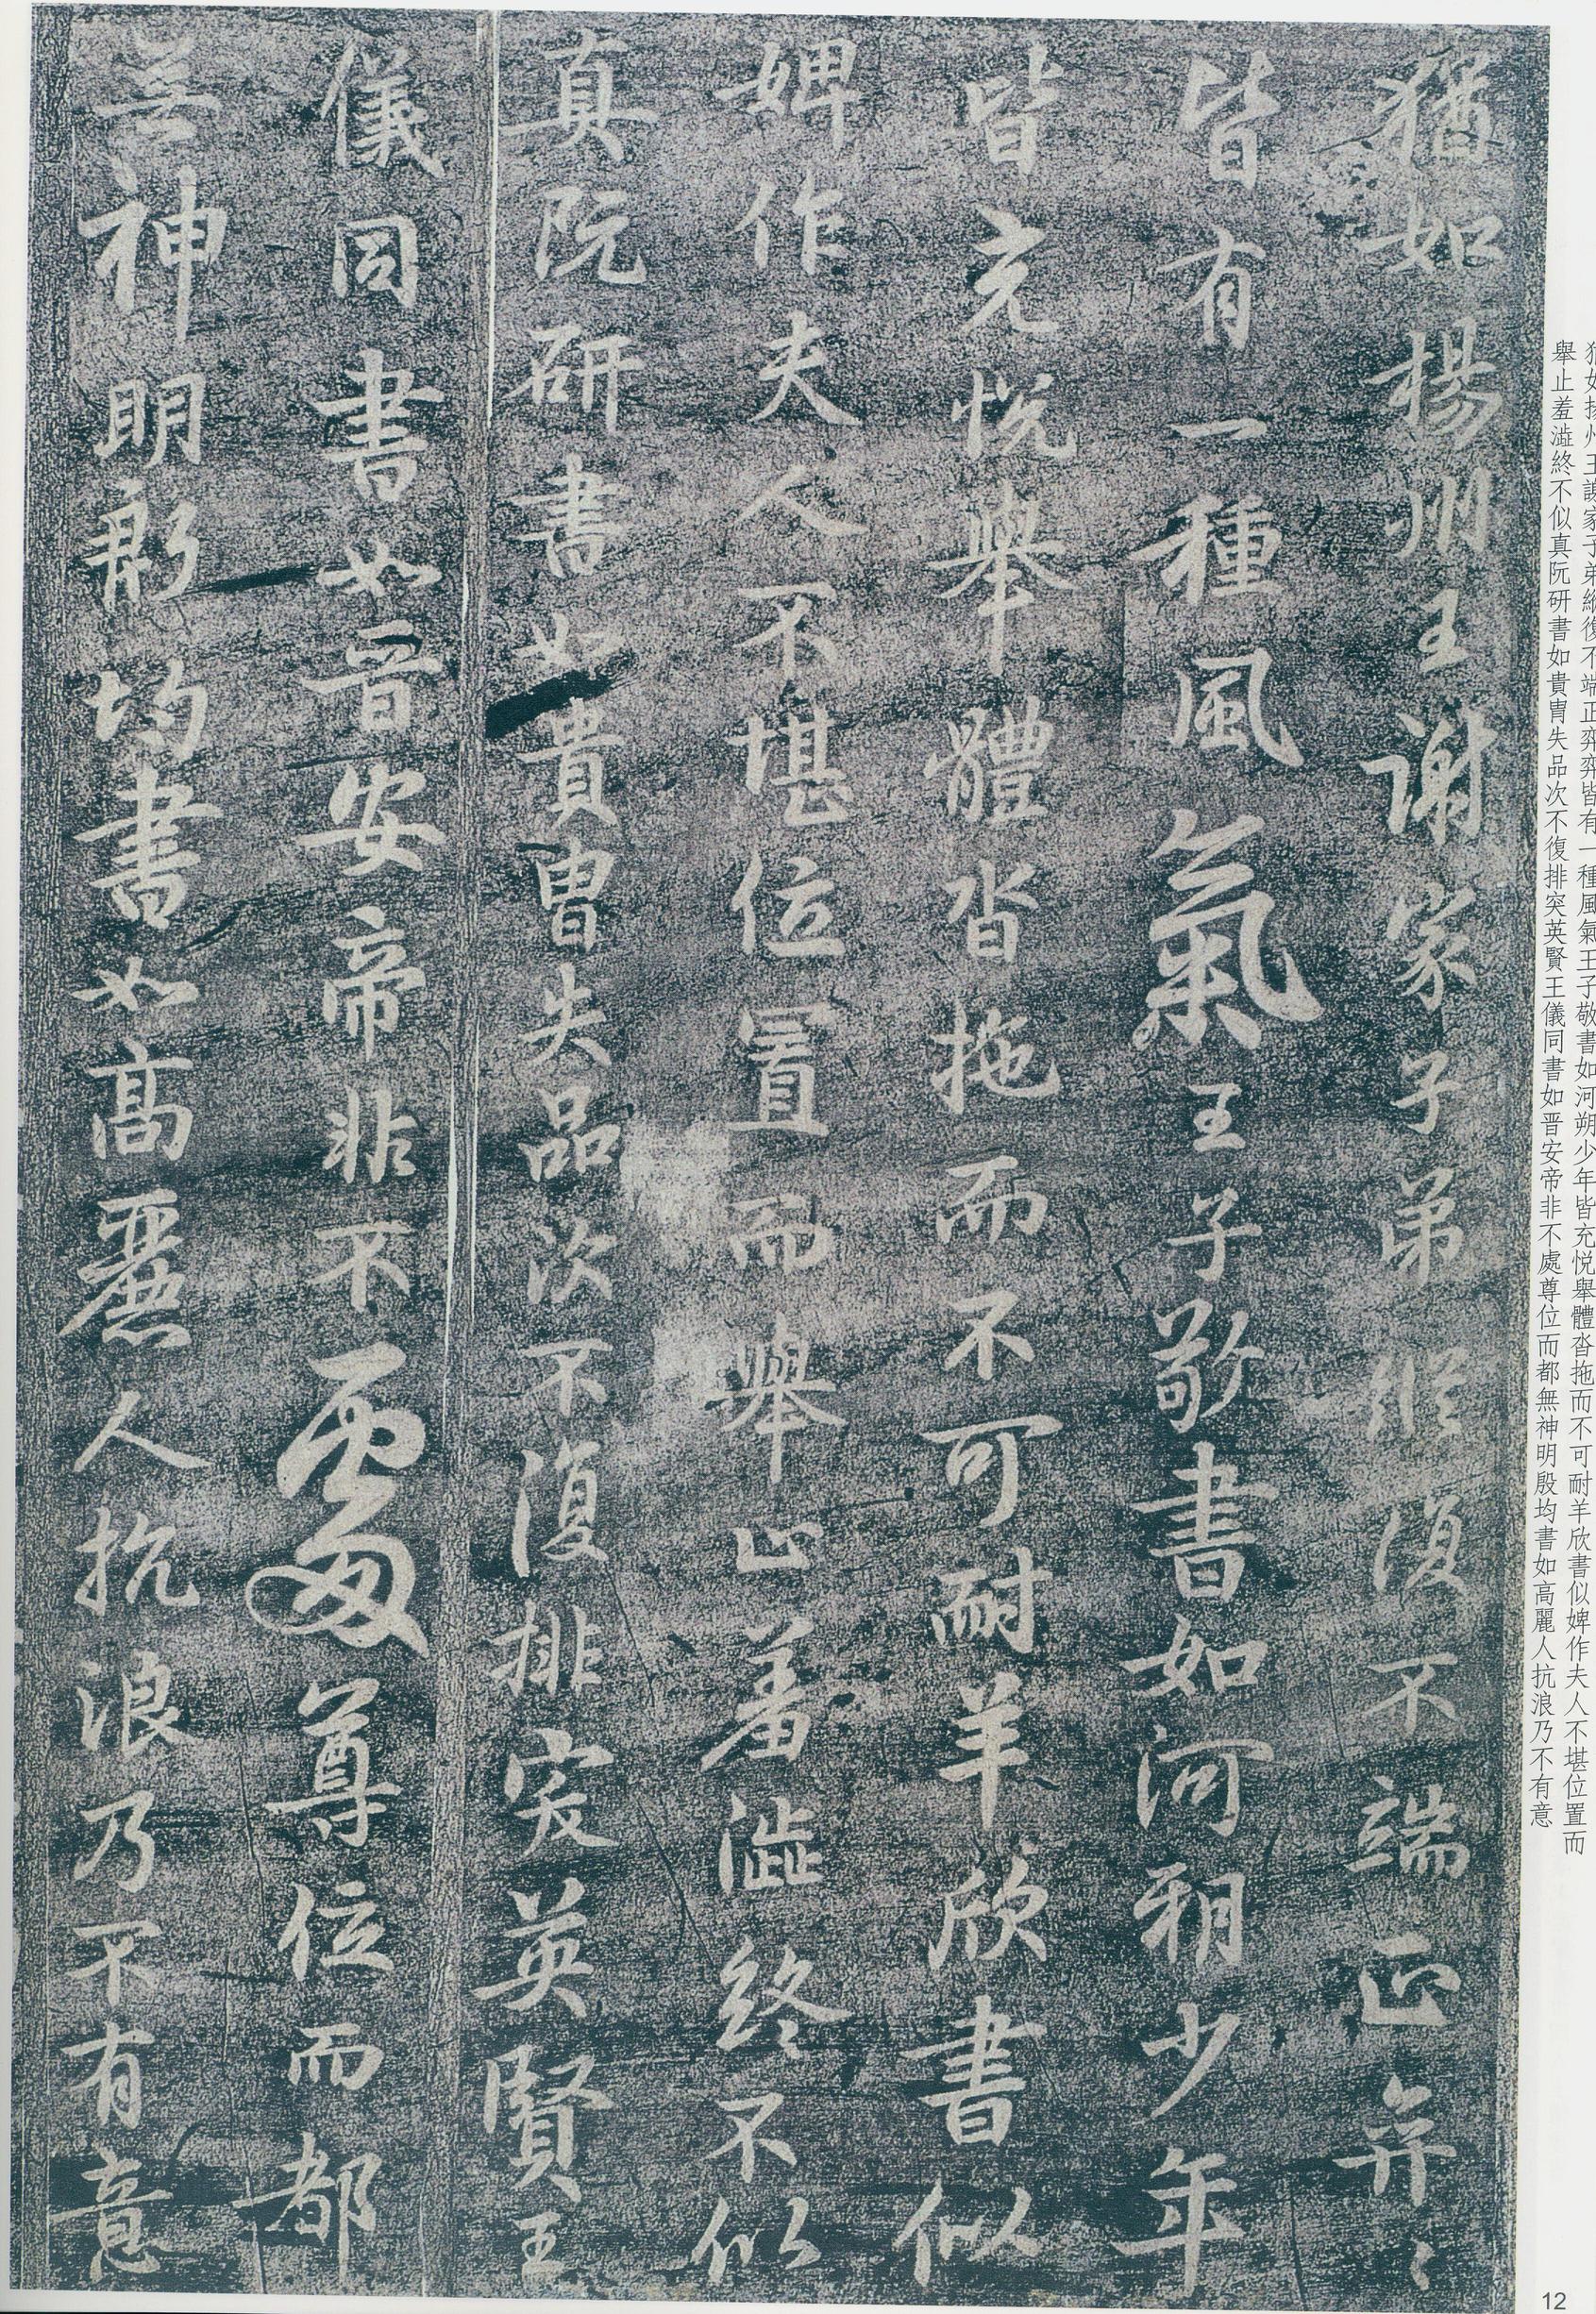 猶如揚州王謝家子弟縱復不端正弈〻
皆有一種風氣王子敬書如河朔少年
皆充悅舉體沓拖而不可耐羊欣書似
婢作夫人不堪位置而舉止羞澁終不似
真阮研書如貴胄失品次不復排突英賢王
儀同書如晉安帝非不處尊位而都
無神明殷均書如高麗人抗浪乃不有意
猶如揚州王謝家子弟縱復不端正弈弈皆有一種風氣王子敬書如河朔少年皆充悅舉體沓拖而不可耐羊欣書似婢作夫人不堪位置而
舉止羞澁終不似真阮研書如貴胄失品次不復排突英賢王儀同書如晉安帝非不處尊位而都無神明殷均書如高麗人抗浪乃不有意
12